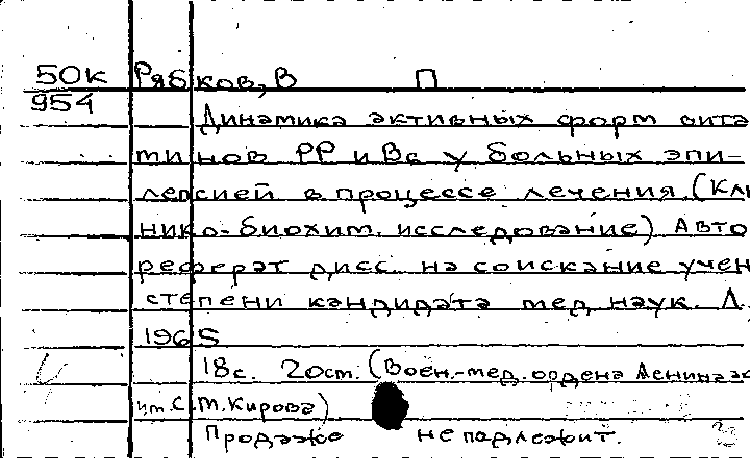 50к Рябков, В П
954
Динамика активных форм вита
минов РР и В6 у больных эпи-
лепсией в процессе лечения. (Кли
нико-биохим. исследование) Авто
реферат дисс. на соискание учен
степени кандидата мед. наук. Л.
1965
18с. 20см. (Воен.-мед. ордена Ленина ак
им. С. М. Кирова)
Продаже не подлежит.